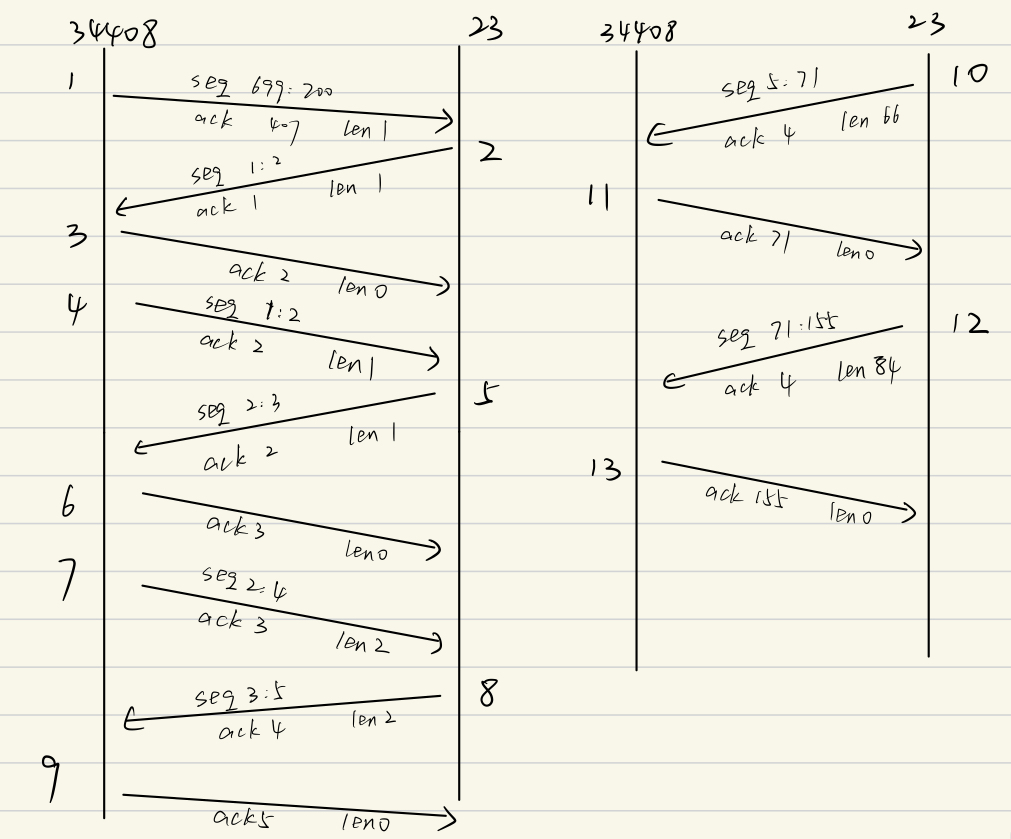 34408 23
1
seq 699:200
ack 407 len 1
2
seq 1:2
ack 1 len 1
3
ack 2 len 0
4
seq 1:2
ack 2 len 1
5
seq 2:3
ack 2 len 1
6
ack 3 len 0
7
seq 2:4
ack 3 len 2
8
seq 3:5
ack 4 len 2
9
ack 5 len 0
34408 23
10
seq 5:71
ack 4 len 66
11
ack 71 len 0
12
seq 71:155
ack 4 len 84
13
ack 155 len 0